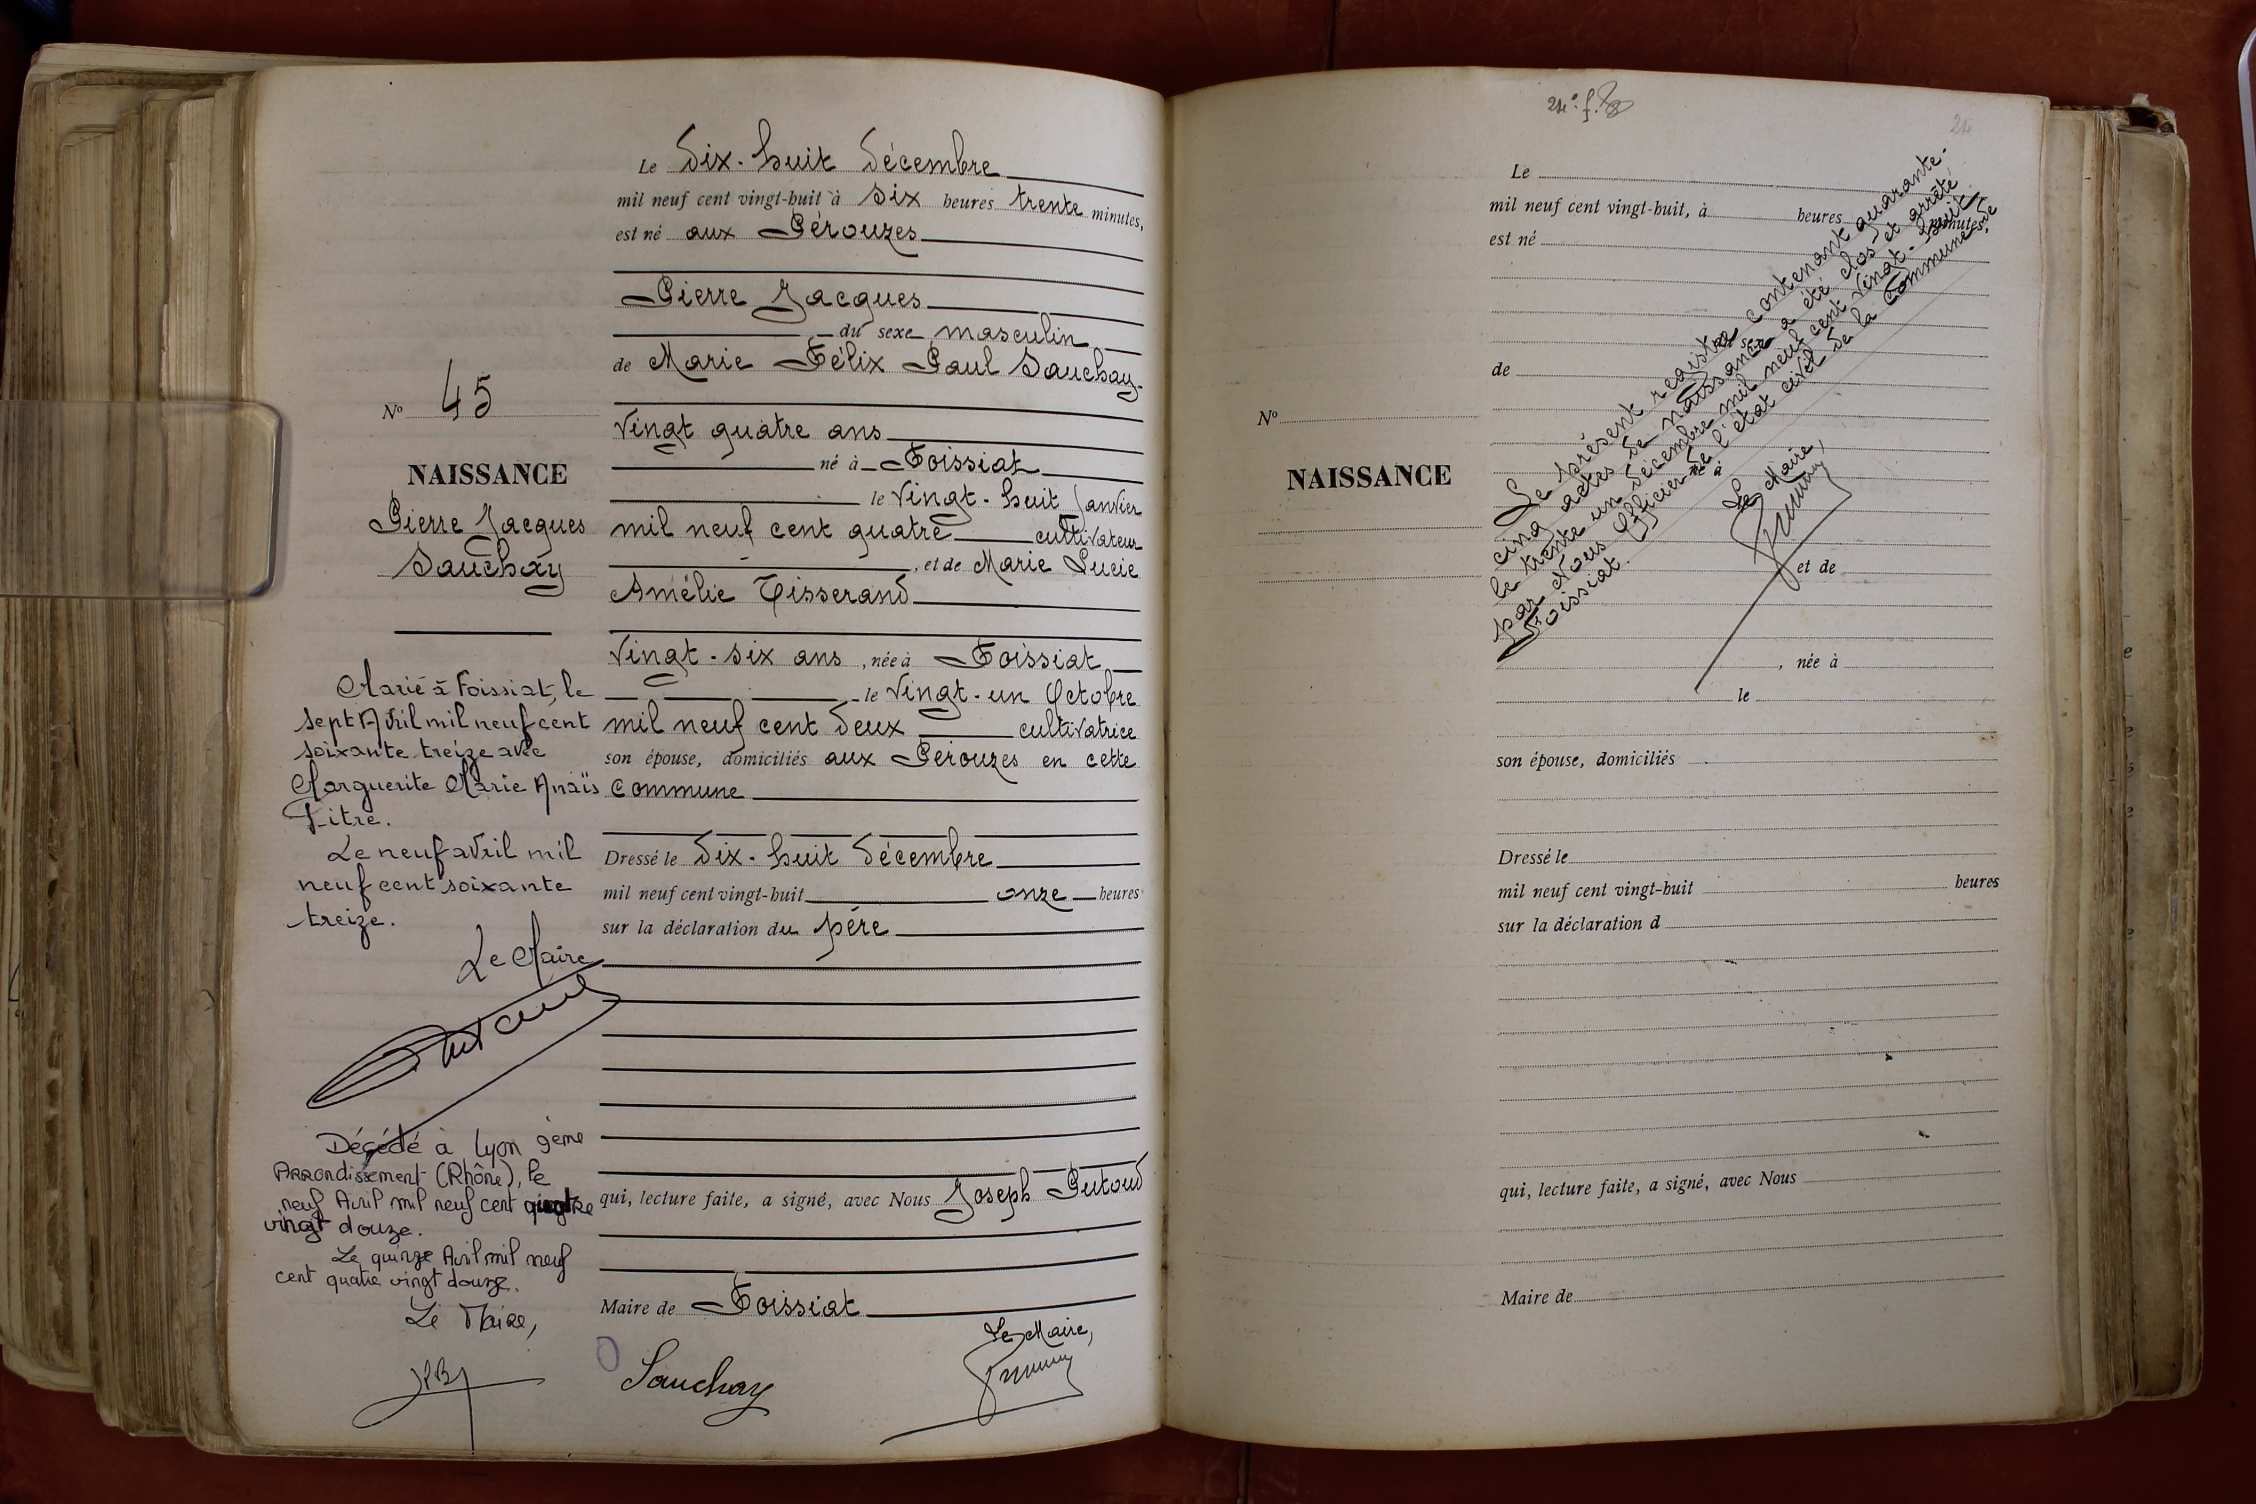 Le dix-huit décembre
mil neuf cent vingt-huit à six heures trente minutes,
est né aux Pérouzes
Pierre Jacques
du sexe masculin
de Marie Félix Paul Sauchay
vingt quatre ans
né à Foissiat
le vingt-huit Janvier
mil neuf cent quatre cultivateur
, et de Marie Lucie
Amélie Tisserand
vingt-six ans, née à Foissiat
le vingt-un Octobre
mil neuf cent deux cultivatrice
son épouse, domiciliés aux Pérouzes en cette
commune
Dressé le dix-huit décembre
mil neuf cent vingt-huit onze heures
sur la déclaration du père
qui, lecture faite, a signé, avec Nous Joseph Putoud
Maire de Foissiat
Le Maire,
Sauchay
No 45
NAISSANCE
Pierre Jacques
Sauchay
Marié à Foissiat, le
sept Avril mil neuf cent
soixante treize avec
Marguerite Marie Anaïs
Pitre.
Le neuf avril mil
neuf cent soixante
treize.
Le Maire
Décédé à Lyon 9ème
Arrondissement (Rhône), le
neuf Avril mil neuf cent quatre
vingt douze.
Le quinze Avril mil neuf
cent quatre vingt douze.
Le Maire,
24e. f.
24
Le
mil neuf cent vingt-huit, à heures minutes,
est né
du sexe
de
No
NAISSANCE
né à
et de
, née à
le
son épouse, domiciliés
Dressé le
mil neuf cent vingt-huit heures
sur la déclaration d
qui, lecture faite, a signé, avec Nous
Maire de
Le présent registre contenant quarante-
cinq actes de naissance a été clos et arrêté
le trente un décembre mil neuf cent vingt-huit
par Nous Officier de l'état civil de la Commune de
Foissiat.
Le Maire,